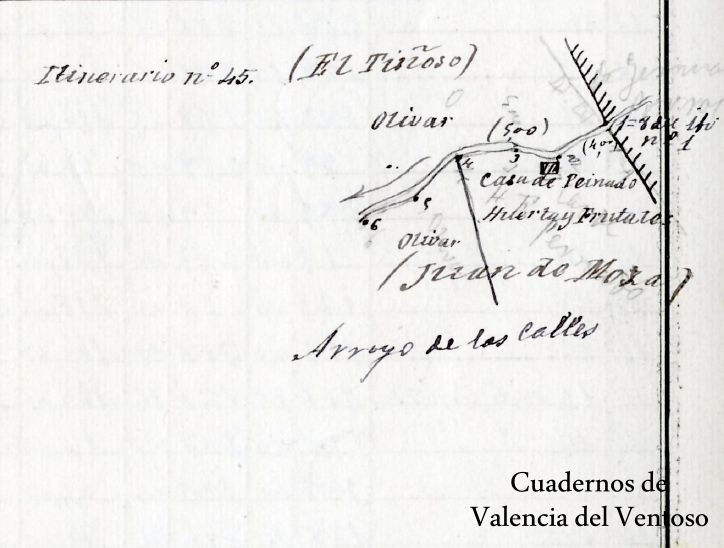 Itinerario nº 45. (El Tiñoso)
Olivar
(500)
(400)
1=8 del Itº
nº 1
4 3 2
VII
Casa de Peinado
5
6
Huerta y Frutales
Olivar
(Juan de Moza)
Arroyo de las Calles
Cuadernos de
Valencia del Ventoso